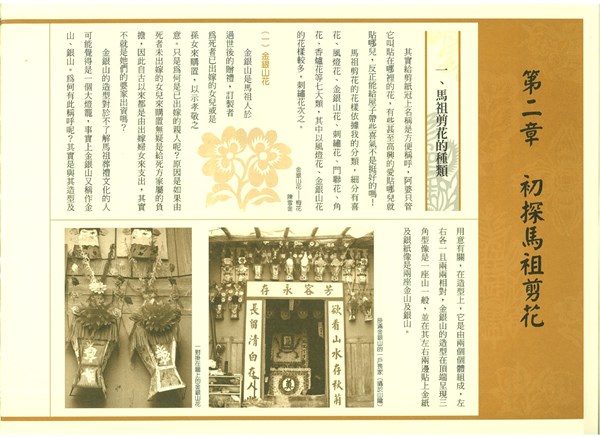 第二章 初探馬祖剪花
一、馬祖剪花的種類
其實給剪紙冠上名稱是方便稱呼，阿婆只管
它叫貼在哪裡的花，有些甚至高佛的愛貼哪兒就
貼哪兒，反正能給屋子帶些喜氣不是挺好的嗎！
馬祖剪花的花樣依據我的分類，細分有喜
花、風燈花、金銀山花、刺繡花、門聯花、角
花、香爐花等七大類，其中以風燈花、金銀山花
的花樣較多，刺繡花次之。
（一）金銀山花
金銀山花——梅花
陳雪金
金銀山是馬祖人於
過世後的贈禮，訂製者
為死者已出嫁的女兒或是
孫女來購置，以示孝敬之
意。只是為何是已出嫁的親人呢？原因是如果由
死者未出嫁的女兒來購置無疑是給死方家屬的負
擔，因此自古以來都是由出嫁婦女來支出，其實
不就是她們的婆家出資嗎？
金銀山的造型對於不了解馬祖葬禮文化的人
可能覺得是一個大燈籠，事實上金銀山又稱作金
山、銀山。為何有此稱呼呢？其實是與其造型及
用意有關，在造型上，它是由兩個個體組成，左
右各一且兩兩相對，金銀山的造型在頂端呈現三
角型像是一座山一般，並在其左右兩邊貼上金紙
及銀紙像是兩座金山及銀山。
掛滿金銀山的一戶喪家
芳容永存
欲看山水存秋菊
長留清白在人
一對掛在牆上的金銀山花